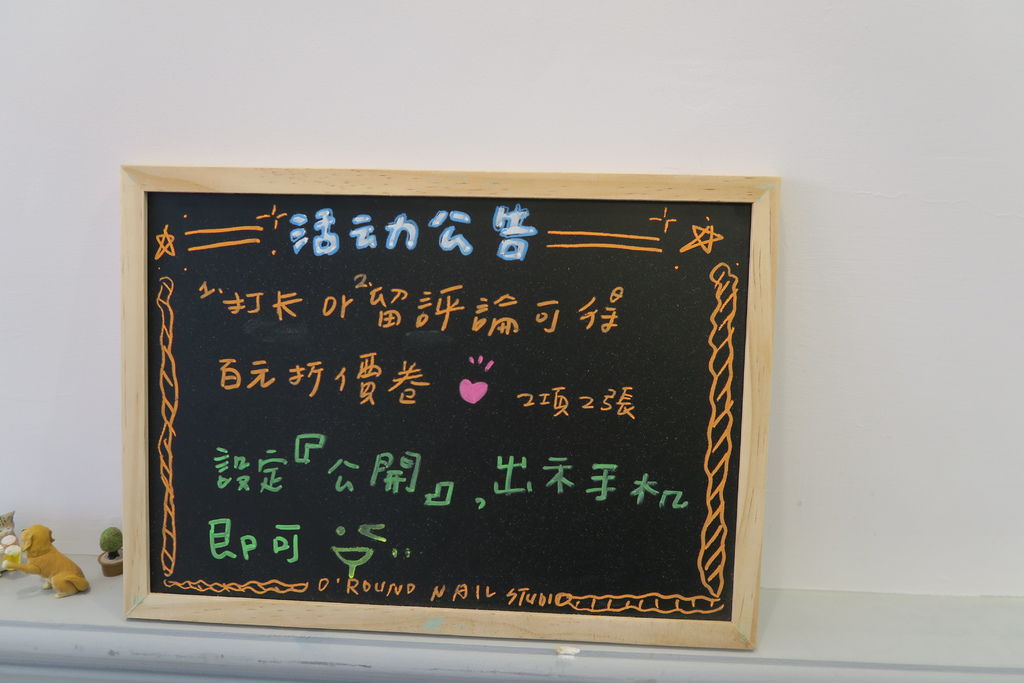 活动力公告
1.打长 or 2.留評論可得
百元折價卷
2項2張
設定『公開』,出示手机
即可
O'ROUND NAIL STUDIO